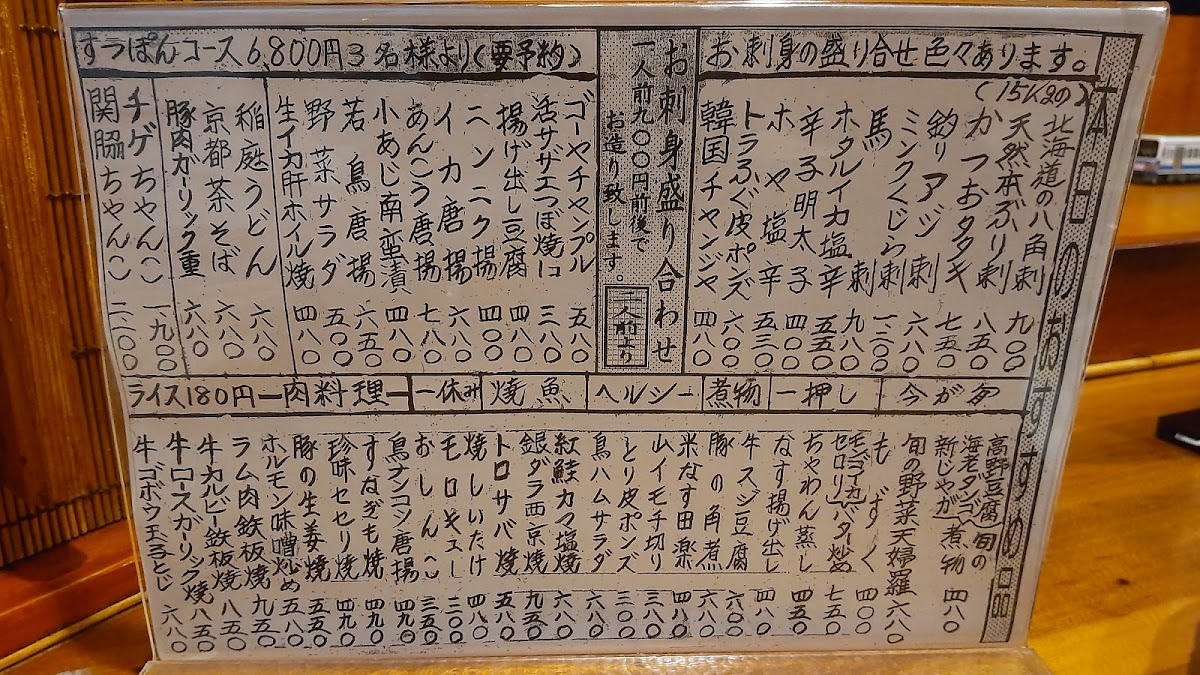 本日のおすすめ品
お刺身の盛り合せ色々あります。
(15KGの)
北海道の八角刺 九〇〇
天然本ぶり刺 八五〇
かつおタタキ 七五〇
釣りアジ刺 六八〇
ミンクくじら刺 一二〇〇
馬刺 九八〇
ホタルイカ塩辛 五五〇
辛子明太子 四〇〇
ホヤ塩辛 五三〇
トラふぐ皮ポンズ 六〇〇
韓国チャンジャ 四八〇
お刺身盛り合わせ
一人前九〇〇円前後で
お造り致します。
二人前より
すっぽんコース6,800円3名様より(要予約)
ゴーヤチャンプル 五八〇
活サザエつぼ焼1コ 三八〇
揚げ出し豆腐 四八〇
ニンニク揚 四〇〇
イカ唐揚 六八〇
あんこう唐揚 七八〇
小あじ南蛮漬 四八〇
若鳥唐揚 六五〇
野菜サラダ 五〇〇
生イカ肝ホイル焼 四八〇
稲庭うどん 六八〇
京都茶そば 六八〇
豚肉ガーリック重 六八〇
チゲちゃんこ 一、九〇〇
関脇ちゃんこ 二、二〇〇
今が旬
一押し
煮物
ヘルシー
焼魚
一休み
肉料理
ライス180円
高野豆腐
海老ダンゴ
新じゃが
旬の煮物 四八〇
旬の野菜天婦羅 六八〇
もずく 四〇〇
モンゴイカ
セロリ
バター炒め 七五〇
ちゃわん蒸し 四五〇
なす揚げ出し 四八〇
牛スジ豆腐 六〇〇
豚の角煮 六八〇
米なす田楽 四八〇
山イモ千切り 三八〇
とり皮ポンズ 三〇〇
鳥ハムサラダ 六八〇
紅鮭カマ塩焼 六八〇
銀ダラ西京焼 九五〇
トロサバ焼 五八〇
焼しいたけ 四八〇
モロキュー 三五〇
おしんこ 三五〇
鳥ナンコツ唐揚 四九〇
すなぎも焼 四九〇
珍味セセリ焼 四九〇
豚の生姜焼 五五〇
ホルモン味噌炒め 五八〇
ラム肉鉄板焼 九五〇
牛カルビー鉄板焼 八五〇
牛ロースガーリック焼 八五〇
牛ゴボウ玉子とじ 六八〇